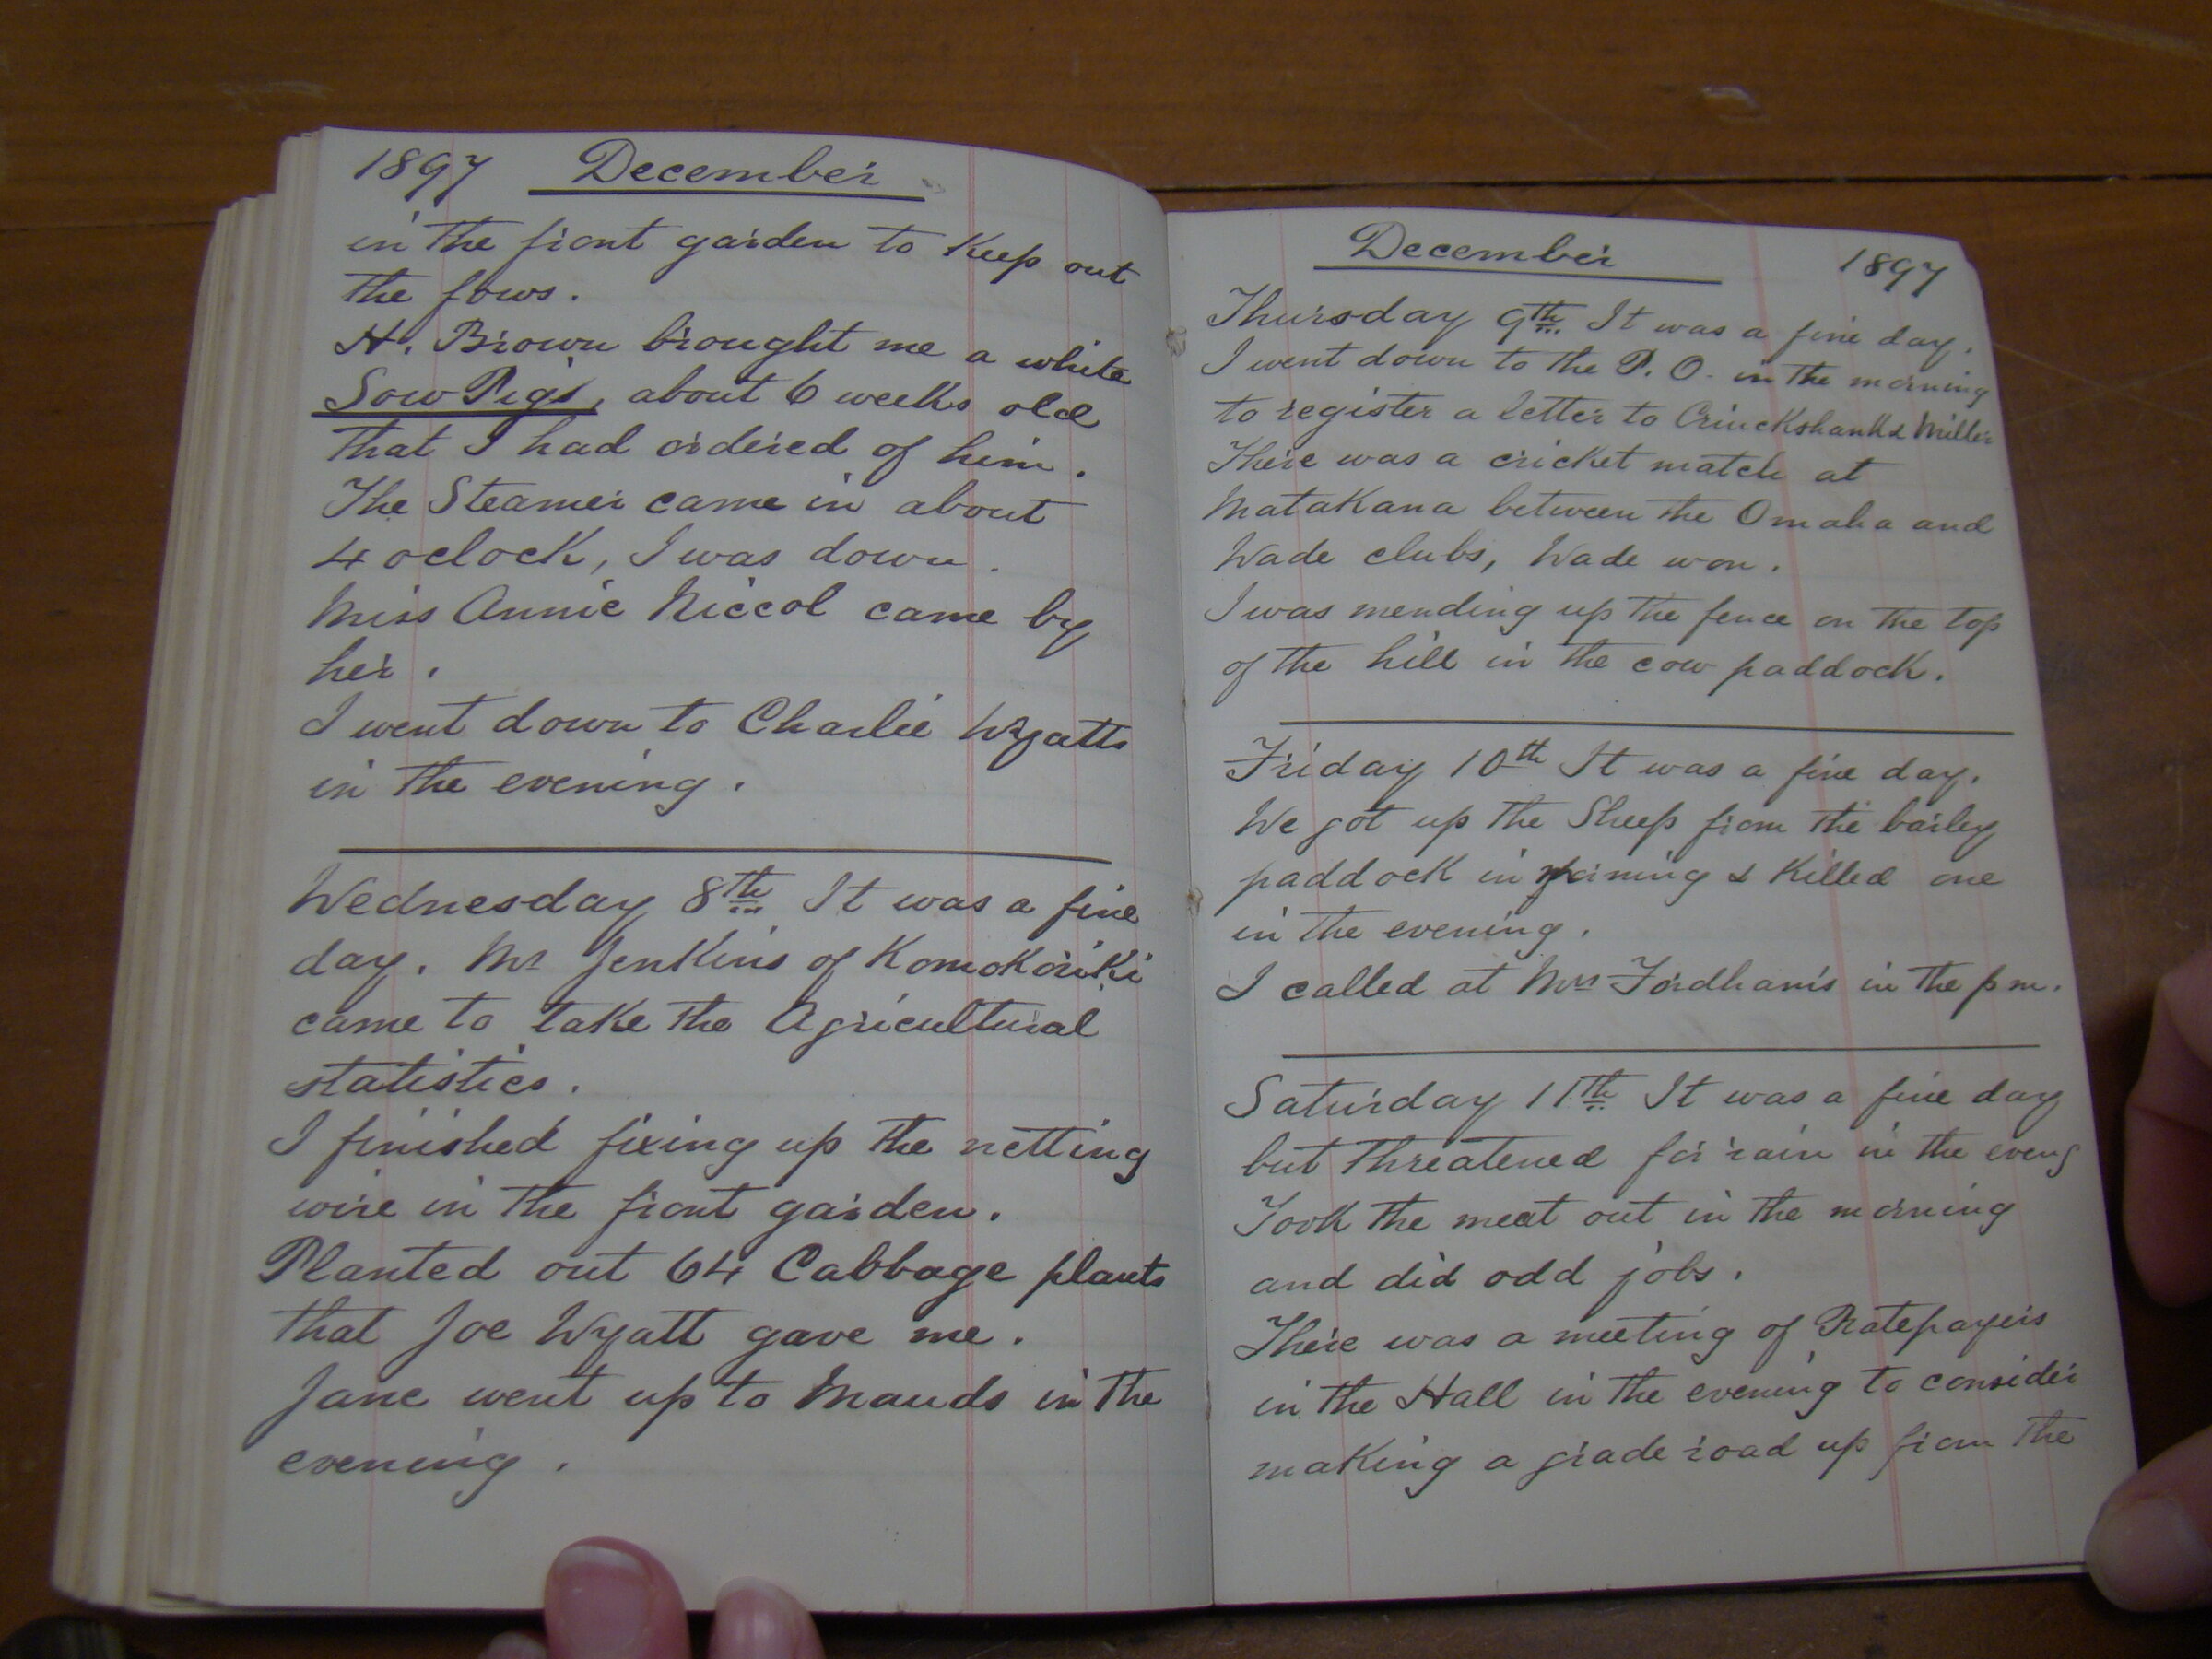 1897 December
in the front garden to keep out
the fows.
H. Brown brought me a white
Sow Pigs, about 6 weeks old
that I had ordered of him.
The Steamer came in about
4 oclock, I was down.
Miss Annie Niccol came by
her.
I went down to Charlie Wyatts
in the evening.
Wednesday 8th It was a fine
day. Mr Jenkins of Komokoriki
came to take the Agricultural
statistics.
I finished fixing up the netting
wire in the front garden.
Planted out 64 Cabbage plants
that Joe Wyatt gave me.
Jane went up to Mauds in the
evening.
December 1897
Thursday 9th It was a fine day.
I went down to the P. O. in the morning
to register a letter to Cruckshank & Miller
There was a cricket match at
Matakana between the Omaha and
Wade clubs, Wade won.
I was mending up the fence on the top
of the hill in the cow paddock.
Friday 10th It was a fine day.
We got up the Sheep from the barley
paddock in morning & killed one
in the evening.
I called at Mrs Fordham's in the pm.
Saturday 11th It was a fine day
but threatened for rain in the eveng
Took the meat out in the morning
and did odd jobs.
There was a meeting of Ratepayers
in the Hall in the evening to consider
making a grade road up from the